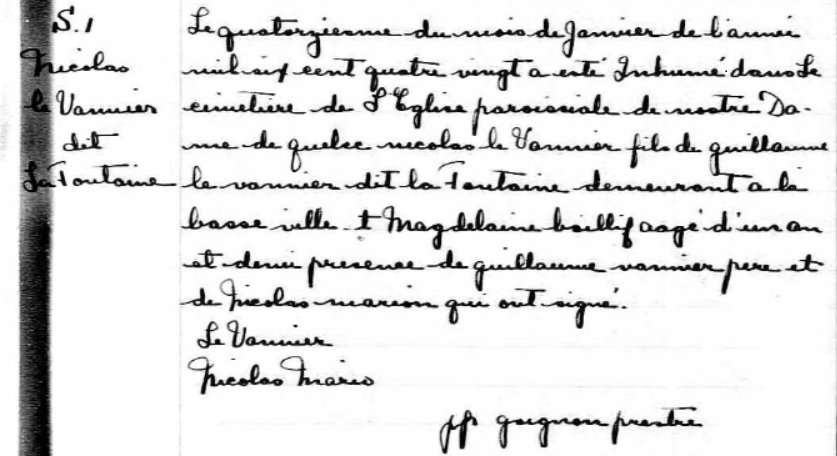 S.1
Nicolas
le Vannier
dit
La Fontaine
Le quatorziesme du mois de Janvier de l'année
mil six cent quatre vingt a esté Inhumé dans Le
cimetière de L'Eglise paroissiale de nostre Da-
me de quebec nicolas le Vannier fils de guillaume
le vannier dit la Fontaine demeurant a la
basse ville t Magdelaine baillif aagé d'un an
et demi presence de guillaume vannier pere et
de Nicolas marion qui ont signé.
Le Vannier
Nicolas Mario
gaignon prestre